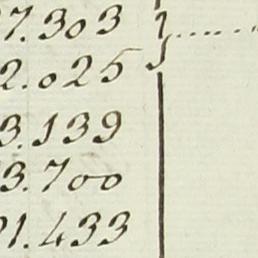 7.303
2.025
3.139
3.700
21.433